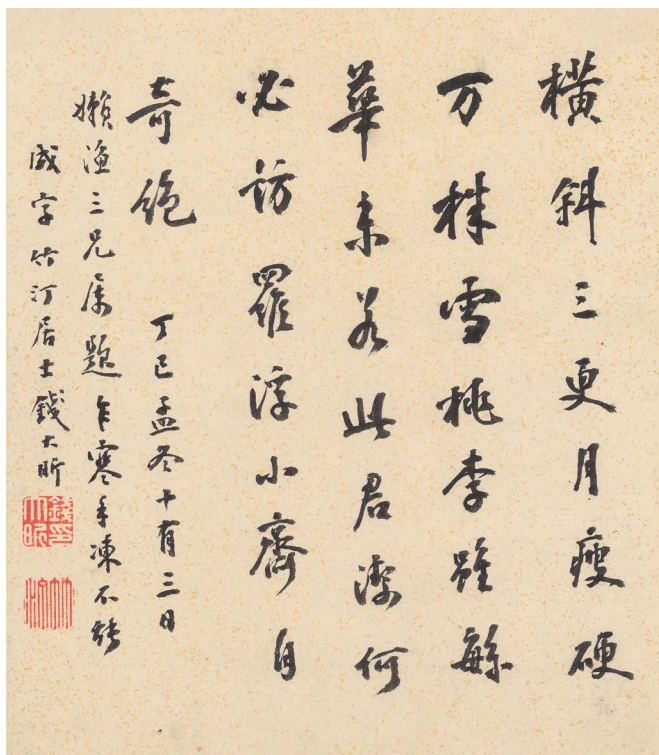 橫斜三更月瘦硬
万株雪桃李雖緐
華未若此君潔何
必訪羅浮小齋自
奇絶
丁巳孟冬十有三日
嬾漁三兄属題乍寒手凍不能
成字竹汀居士錢大昕
錢大昕印
竹汀